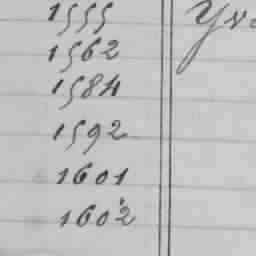 1555
1562
1584
1592
1601
1602